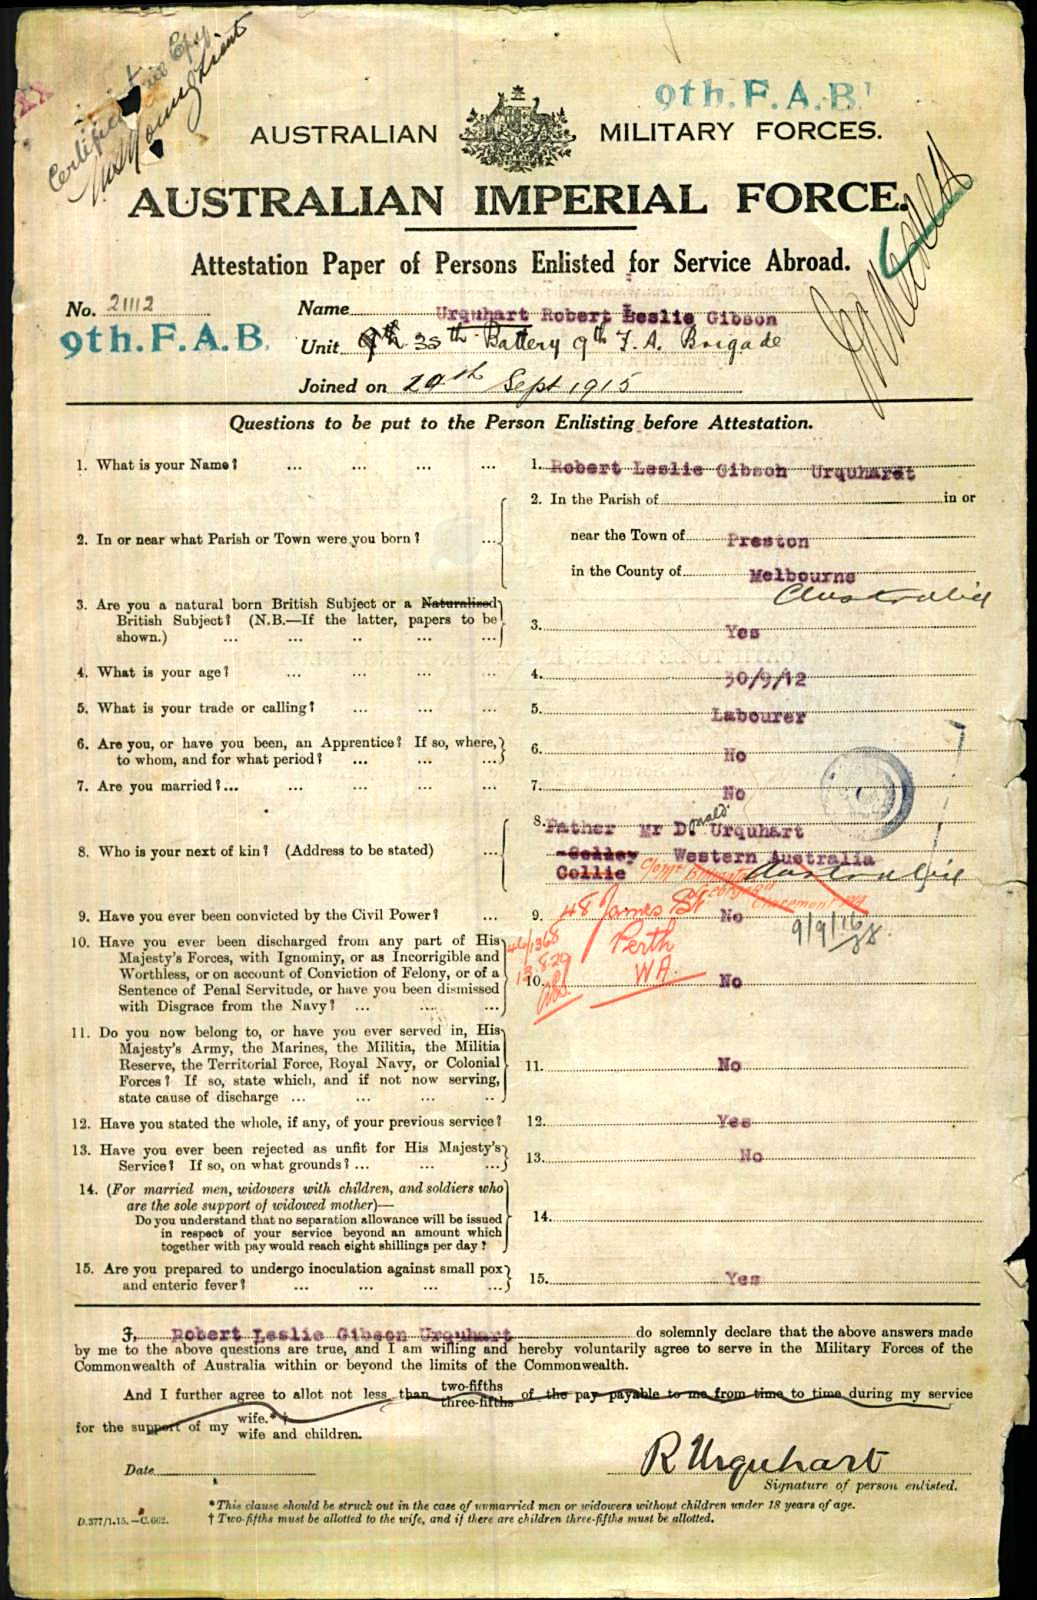 Certified
9th. F. A. B.
AUSTRALIAN MILITARY FORCES.
AUSTRALIAN IMPERIAL FORCE.
Attestation Paper of Persons Enlisted for Service Abroad.
No. 21112
Name Urquhart Robert Leslie Gibson
9th. F. A. B.
Unit 9th 35th Battery 9th F. A. Brigade
Joined on 29th Sept 1915
Questions to be put to the Person Enlisting before Attestation.
1. What is your Name? ... ... ... ... 1. Robert Leslie Gibson Urquhart
2. In or near what Parish or Town were you born? ... 2. In the Parish of in or
near the Town of Preston
in the County of Melbourne
Australia
3. Are you a natural born British Subject or a Naturalized
British Subject? (N.B.—If the latter, papers to be
shown.) ... ... .. ... ... 3. Yes
4. What is your age? ... ... ... ... 4. 30/9/12
5. What is your trade or calling? ... ... ... 5. Labourer
6. Are you, or have you been, an Apprentice? If so, where,
to whom, and for what period? ... ... ... 6. No
7. Are you married?... ... ... ... ... 7. No
8. Who is your next of kin? (Address to be stated) ... 8. Father Mr Donald Urquhart
Colley Western Australia
Collie Australia
48 James St
Perth
WA.
9/9/16
46/1368
13.8.20
9. Have you ever been convicted by the Civil Power? ... 9. No
10. Have you ever been discharged from any part of His
Majesty's Forces, with Ignominy, or as Incorrigible and
Worthless, or on account of Conviction of Felony, or of a
Sentence of Penal Servitude, or have you been dismissed
with Disgrace from the Navy? ... ... ... 10. No
11. Do you now belong to, or have you ever served in, His
Majesty's Army, the Marines, the Militia, the Militia
Reserve, the Territorial Force, Royal Navy, or Colonial
Forces? If so, state which, and if not now serving,
state cause of discharge ... ... ... .. 11. No
12. Have you stated the whole, if any, of your previous service? 12. Yes
13. Have you ever been rejected as unfit for His Majesty's
Service? If so, on what grounds? ... ... ... 13. No
14. (For married men, widowers with children, and soldiers who
are the sole support of widowed mother)—
Do you understand that no separation allowance will be issued
in respect of your service beyond an amount which
together with pay would reach eight shillings per day? 14.
15. Are you prepared to undergo inoculation against small pox
and enteric fever? ... ... ... ... 15. Yes
I, Robert Leslie Gibson Urquhart do solemnly declare that the above answers made
by me to the above questions are true, and I am willing and hereby voluntarily agree to serve in the Military Forces of the
Commonwealth of Australia within or beyond the limits of the Commonwealth.
And I further agree to allot not less than two-fifths three-fifths of the pay payable to me from time to time during my service
for the support of my wife.* † wife and children.
Date
R Urquhart
Signature of person enlisted.
* This clause should be struck out in the case of unmarried men or widowers without children under 18 years of age.
† Two-fifths must be allotted to the wife, and if there are children three-fifths must be allotted.
D.377/1.15.—C.662.